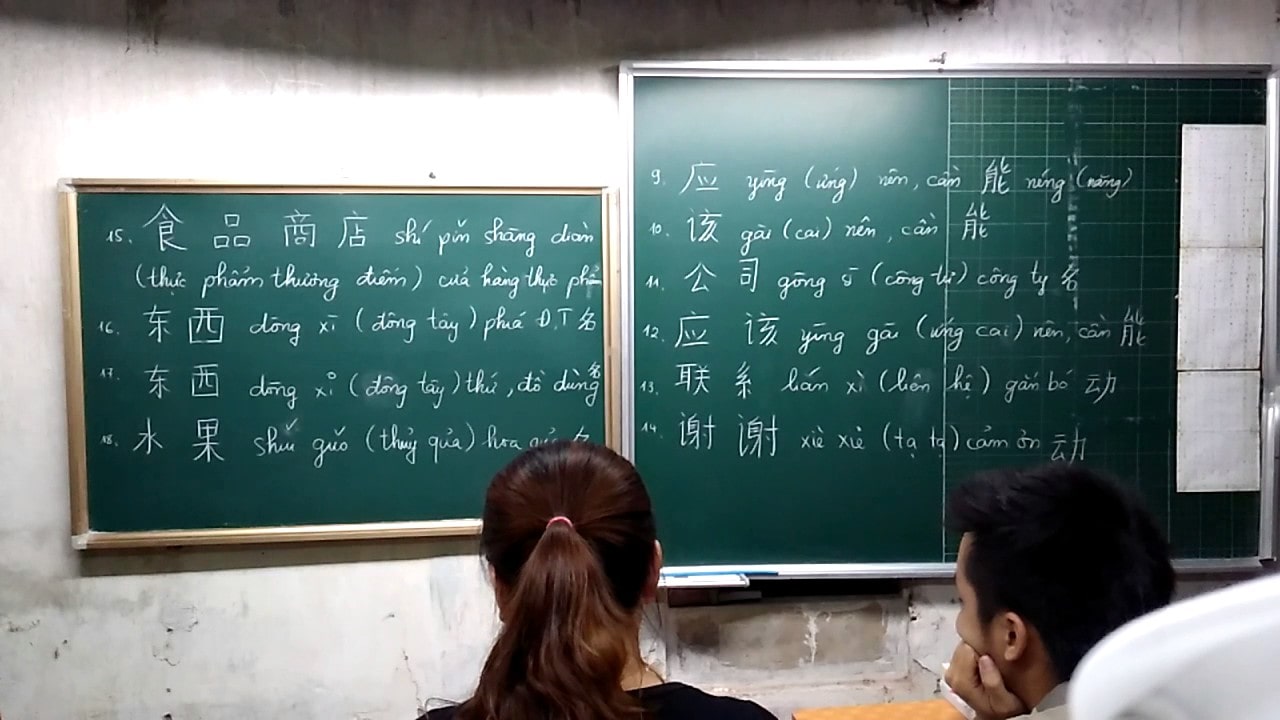 15. 食 品 商 店 shí pǐn shāng diàn
(thực phẩm thương điếm) cửa hàng thực phẩ
16. 东 西 dōng xī (đông tây) phía Đ.T 名
17. 东 西 dōng xi (đông tây) thứ, đồ dùng 名
18. 水 果 shuǐ guǒ (thuỷ quả) hoa quả
9. 应 yīng (ứng) nên, cần 能 néng (năng)
10. 该 gāi (cai) nên, cần 能
11. 公 司 gōng sī (công tư) công ty 名
12. 应 该 yīng gāi (ứng cai) nên, cần 能
13. 联 系 lián xì (liên hệ) gắn bó 动
14. 谢 谢 xiè xiè (tạ tạ) cảm ơn 动